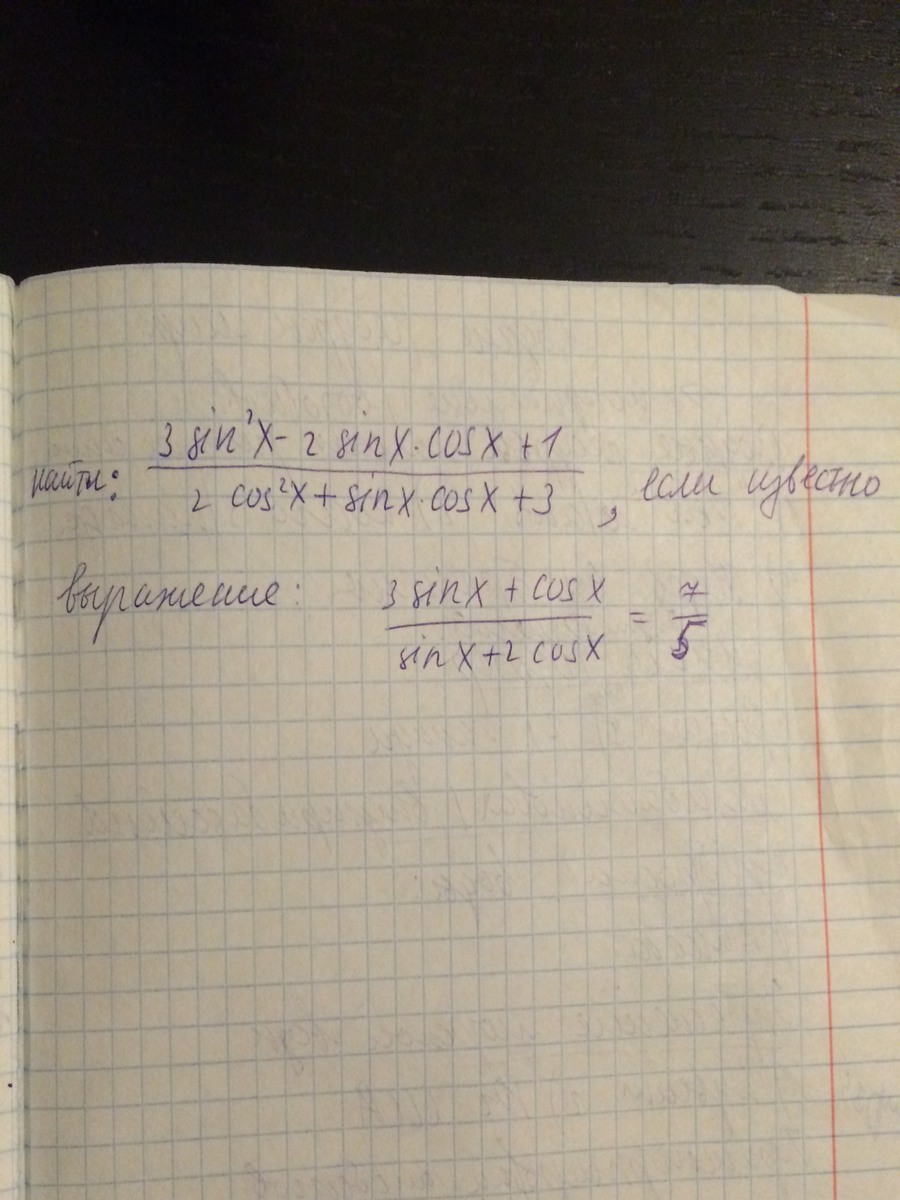 найти: (3 sin²x - 2 sinx·cosx + 1)/(2 cos²x + sinx·cosx + 3), если известно
выражение: (3 sinx + cosx)/(sinx + 2 cosx) = 7/5